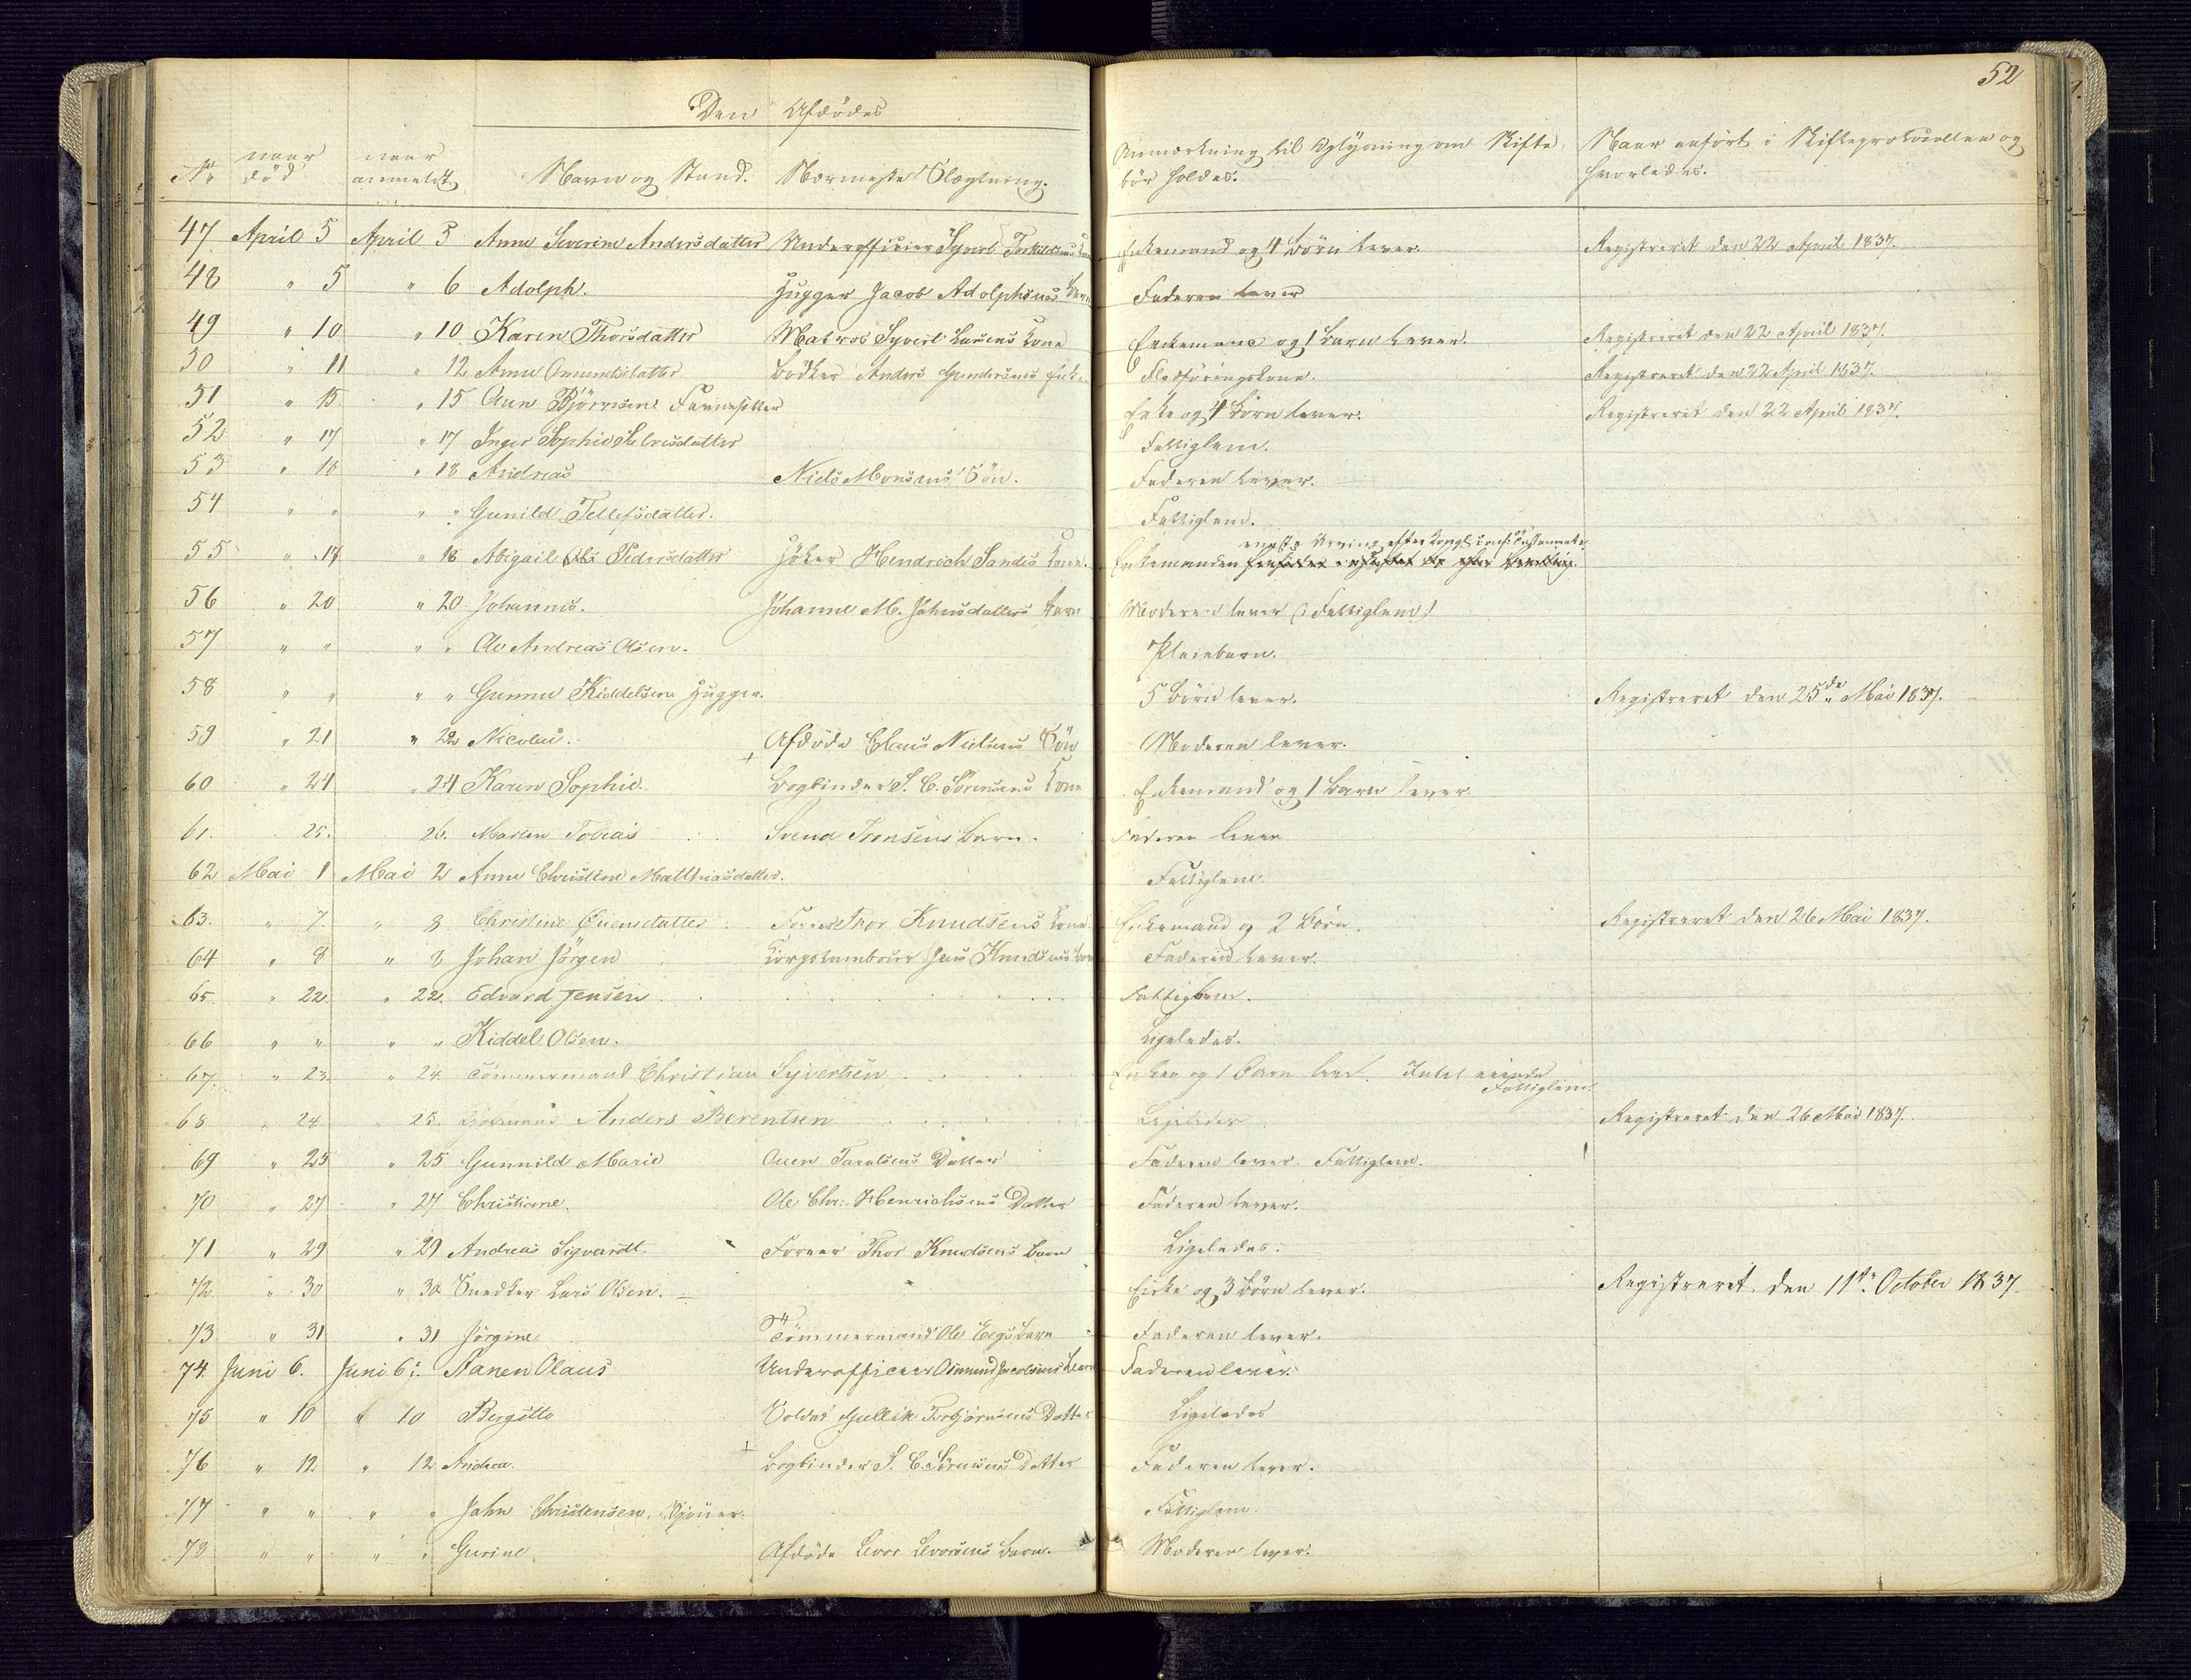 52
Den Afdødes
No naar død naar anmeldt Navn og Stand. Nærmeste Slægtning. Anmærkning til Oplysning om Skifte bør holdes. Naar anført i Skifteprotocollen og hvorledes.
47 April 5 April 5 Anne Severine Andersdatter Underofficier Syvert Torkildsens Kone Enkemand og 4 Børn lever. Registreret den 22 April 1837.
48 " 5 " 6 Adolph. Hugger Jacob Adolphsens Barn Faderen lever
49 " 10 " 10 Karen Thorsdatter Matros Syvert Larsens Kone Enkemand og 1 Barn lever. Registreret den 22 April 1837.
50 " 11 " 12 Anne Omundsdatter Bødker Anders Gundersens Enke Fledføringskone. Registreret den 22 April 1837.
51 " 15 " 15 Aun Bjørnsen Enke og 4 Børn lever. Registreret den 22 April 1837.
52 " 17 " 17 Inger Sophie Fattiglem.
53 " 18 " 18 Andreas Niels Monsens Søn. Faderen lever.
54 " " " " Gunild Tellefsdatter. Fattiglem.
55 " 18 " 18 Abigail Pedersdatter Høker Hendrich Sandes Kone. Enkemanden eneste Arving efter
56 " 20 " 20 Johannes. Johanne M. Jahnsdatters Barn Moderen lever (: Fattiglem :)
57 " " " " Ole Andreas Olsen. Pleiebarn.
58 " " " " Gunner Kiddelsen Hugger. 5 Børn lever. Registreret den 25de Mai 1837.
59 " 21 " 22 Nicolai. Afdøde Claus Nielsens Søn Moderen lever.
60 " 24 " 24 Karen Sophie. + Bogbinder S. C. Sörensens Kone Enkemand og 1 Barn lever.
61. 25. 26. Marten Tobias Svend Tronsens Barn. Faderen lever
62 Mai 1 Mai 2 Anne Christine Matthiasdatter. Fattiglem.
63. " 7. " 8 Christine Ouensdatter Forer Thor Knudsens Kone. Enkemand og 2 Børn. Registreret den 26 Mai 1837.
64 " 8 " 8 Johan Jörgen Korpstambour Jens Knudsens Søn Faderen lever.
65. " 22 " 22. Edvard Jensen Fattiglem.
66 " " " " Kiddel Olsen. Ligeledes.
67. " 23 " 24. Tømmermand Christian Syvertsen Enken og 1 Barn lever. Intet eiende Fattiglem
68 " 24 " 25. Anders Berentsen Ligeledes Registreret den 26 Mai 1837.
69 " 25 " 25 Gunnild Marie Ouen Taraldsens Datter Faderen lever. Fattiglem.
70 " 27 " 27 Christiane. Ole Chr. Henrichsens Datter Faderen lever.
71 " 29 " 29 Andreas Sigvardt. Forer Thor Knudsens Barn Ligeledes.
72 " 30 " 30 Snedker Lars Olsen. Enke og 3 Børn lever. Registreret den 11te October 1837.
73 " 31 " 31 Jörgine Tømmermand Ole Eegs Barn Faderen lever.
74. Juni 6. Juni 6. Aanen Olaus Underofficier Osmund Jacobsens Barn Faderen lever.
75 " 10 " 10 Bergitte Soldat Gullik Torbjørnsens Datter Ligeledes
76 " 12 " 12 Andrea. + Bogbinder S. C. Sörensens Datter Faderen lever.
77 " " " " Jahn Christensen, Fattiglem.
78 " " " " Gurine Afdøde Levor Levorsens Barn. Moderen lever.